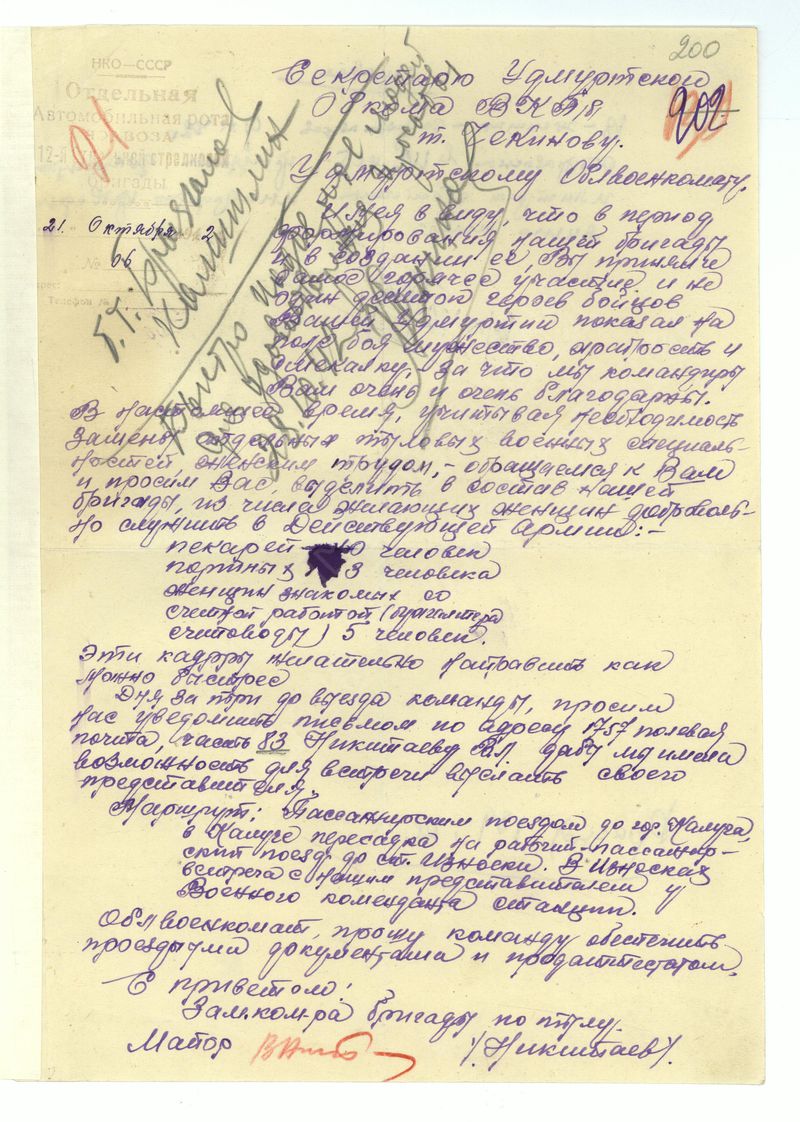 200
202
НКО—СССР
Отдельная
Автомобильная рота
12-й стрелковой
бригады
21. Октября 2
№ 06
Телефон №
Секретарю Удмуртской
Обкома ВКП/б
т. Чекинову.
Удмуртскому Облвоенкомату.
Имея в виду, что в период
формирования нашей бригады
и в создании ее Вы приняли
самое горячее участие и не
один десяток героев бойцов
Вашей Удмуртии показал на
поле боя мужество, храбрость и
смекалку. За что мы командиры
Вам очень и очень благодарны.
В настоящее время, учитывая необходимость
замены отдельных тыловых военных специаль-
ностей, женским трудом, - обращаемся к Вам
и просим Вас, выделить в состав нашей
бригады, из числа желающих женщин доброволь-
но служить в Действующей Армии: -
пекарей 10 человек
портных 3 человека
женщин знакомых со
счетной работой (бухгалтера
счетоводы) 5 человек.
Эти кадры желательно направить как
можно быстрее
Дня за три до выезда команды, просим
нас уведомить письмом по адресу 1757 полевая
почта, часть 83 Никитаеву дабы мы имели
возможность для встречи выслать своего
представителя.
Маршрут: Пассажирским поездом до гор. Калуга,
в Калуге пересадка на рабочий-пассажир-
ский поезд до ст. Износки. В Износках
встреча с нашим представителем у
Военного коменданта станции.
Облвоенкомат, прошу команду обеспечить
проездными документами и продаттестатом.
С приветом!
Зам. ком-ра бригады по тылу.
Майор /Никитаев/.
т.т. Брызгалов
Калинкин
Быстро